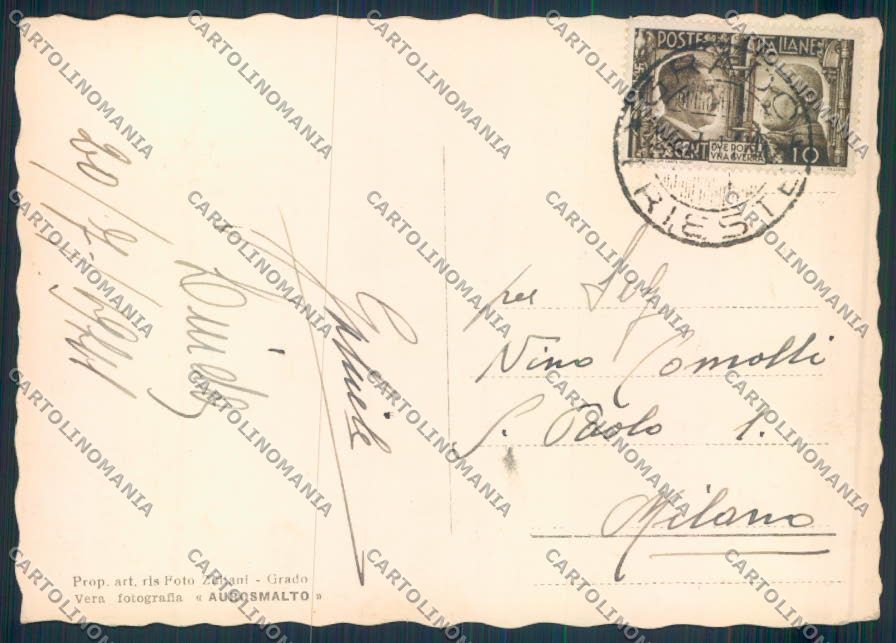 POSTE ITALIANE
CENT DVE POPOLI VNA GVERRA 10
TRIESTE
per
Nino Comolli
S. Paolo 1.
Milano
20/7-1941
Prop. art. ris Foto Zuliani - Grado
Vera fotografia « AUSOSMALTO »
CARTOLINOMANIA